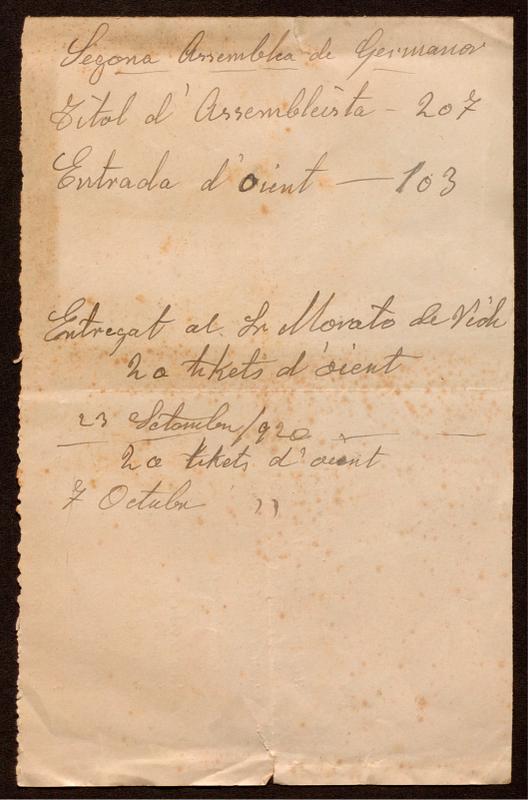 Segona Assemblea de Germanor
Títol d'Assembleista - 207
Entrada d'oient — 103
Entregat al Sr Morato de Vich
20 tikets d'oient
23 Setembre/920 — —
20 tikets d'oient
7 Octubre "